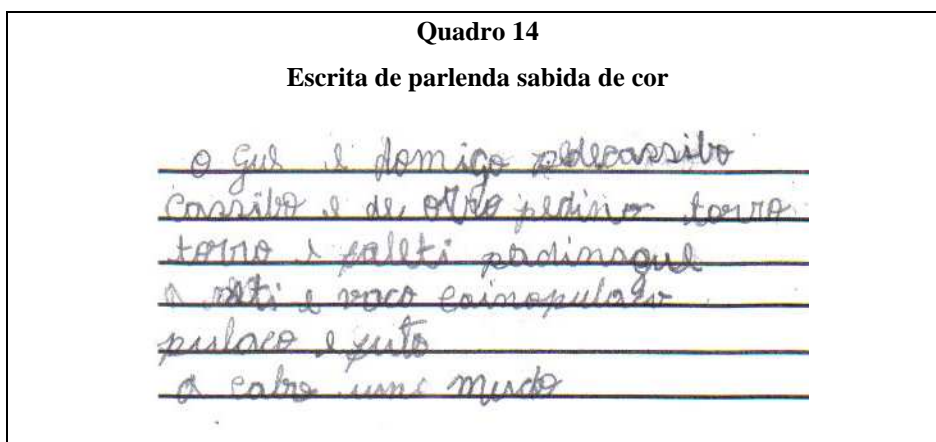 Quadro 14
Escrita de parlenda sabida de cor
o gue e domigo pedecassibo
cassibo e de orro pedino torro
torro e valeti padinogue
a veti e vaco cainopulaco
pulaco e futo
a cabo umc mudo